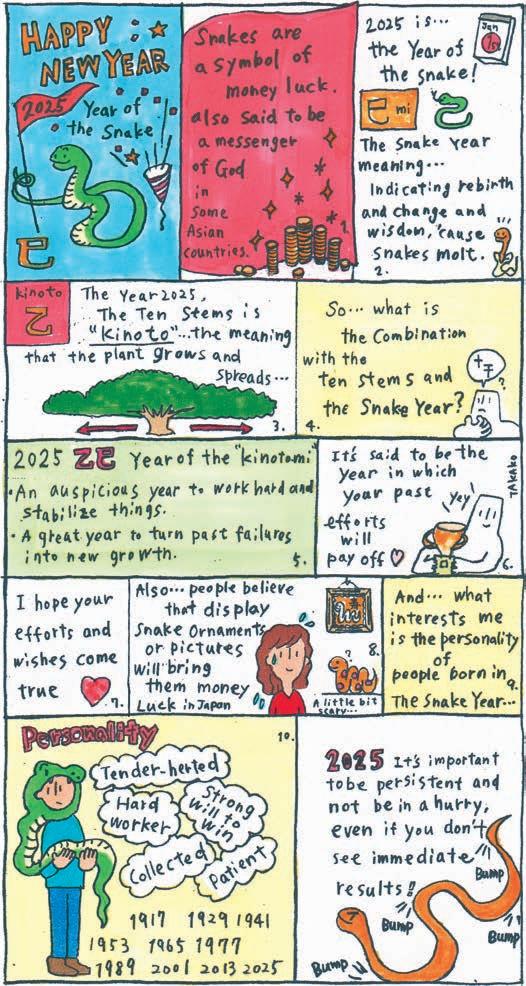 HAPPY
NEW YEAR
2025
Year of
the Snake
巳
Snakes are
a symbol of
money luck.
also said to be
a messenger
of God
in
some
Asian
countries.
1.
2025 is...
the Year of
the snake!
Jan
1s
巳 mi
The Snake Year
meaning...
Indicating rebirth
and change and
wisdom, 'cause
snakes molt.
2.
kinoto
乙
The Year 2025,
The Ten Stems is
"Kinoto"...the meaning
that the plant grows and
spreads...
3.
So... what is
the Combination
with the
ten stems and
the Snake Year?
十干
?
4.
2025 乙巳 Year of the "kinotomi"
・An auspicious year to work hard and
stabilize things.
・A great year to turn past failures
into new growth.
5.
It's said to be the
year in which
your past
efforts
will
pay off
yey
TAKAKO
6.
I hope your
efforts and
wishes come
true
7.
Also... people believe
that display
Snake Ornaments
or pictures
will bring
them money
Luck in Japan
8.
?
A little bit
scary...
And... what
interests me
is the personality
of
people born in
The Snake Year...
9.
Personality
10.
Tender-herted
Hard
worker
Strong
will to
win
Collected
Patient
1917 1929 1941
1953 1965 1977
1989 2001 2013 2025
2025 It's important
to be persistent and
not be in a hurry,
even if you don't
see immediate
results!
Bump
Bump
Bump
Bump